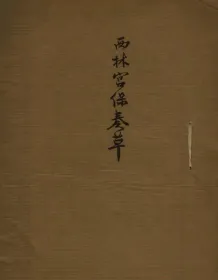 西林宫保奏草